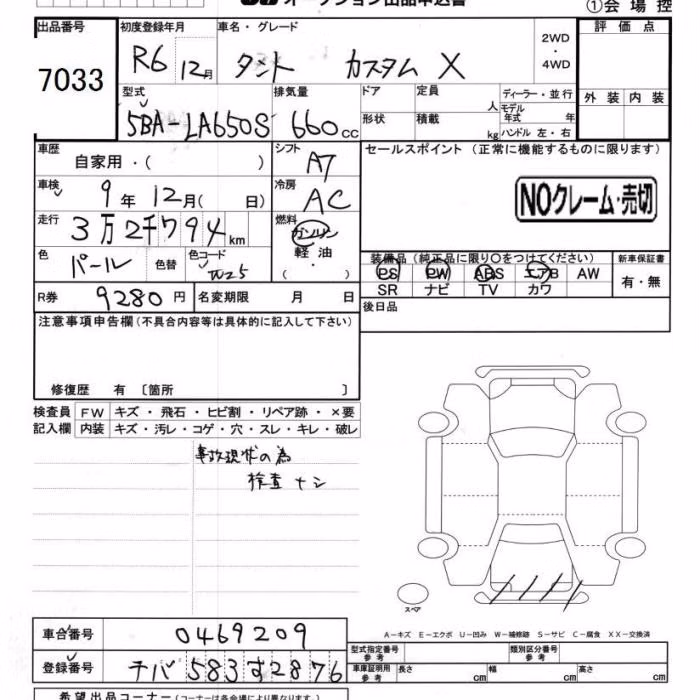 オークション出品申込書
①会場控
出品番号 初度登録年月 車名・グレード 2WD・4WD 評価点
7033 R6 12月 タント カスタム X
型式 排気量 ドア 定員 人 ディーラー・並行 外装 内装
5BA-LA650S 660cc 形状 積載 kg モデル年式 年 ハンドル 左・右
車歴 自家用・( ) シフト A7 セールスポイント (正常に機能するものに限ります)
車検 9年12月( 日) 冷房 AC NOクレーム・売切
走行 3万2千794km 燃料 ガソリン 軽油・( )
色 パール 色替 色コード W25 装備品 (純正品に限り〇をつけてください) 新車保証書
PS PW ABS エアB AW 有・無
SR ナビ TV カワ
R券 9280円 名変期限 月 日 後日品
注意事項申告欄(不具合内容等は具体的に記入して下さい)
修復歴 有 〔箇所 〕
検査員 FW キズ・飛石・ヒビ割・リペア跡・×要
記入欄 内装 キズ・汚レ・コゲ・穴・スレ・キレ・破レ
事故現状の為
検査ナシ
スペア
A-キズ E-エクボ U-凹み W-補修跡 S-サビ C-腐食 XX-交換済
車台番号 0469209 型式指定番号参考 類別区分番号参考
登録番号 チバ 583 す2876 車庫証明用参考 長さ cm 幅 cm 高さ cm
希望出品コーナー(コーナーは各会場により異なります。)